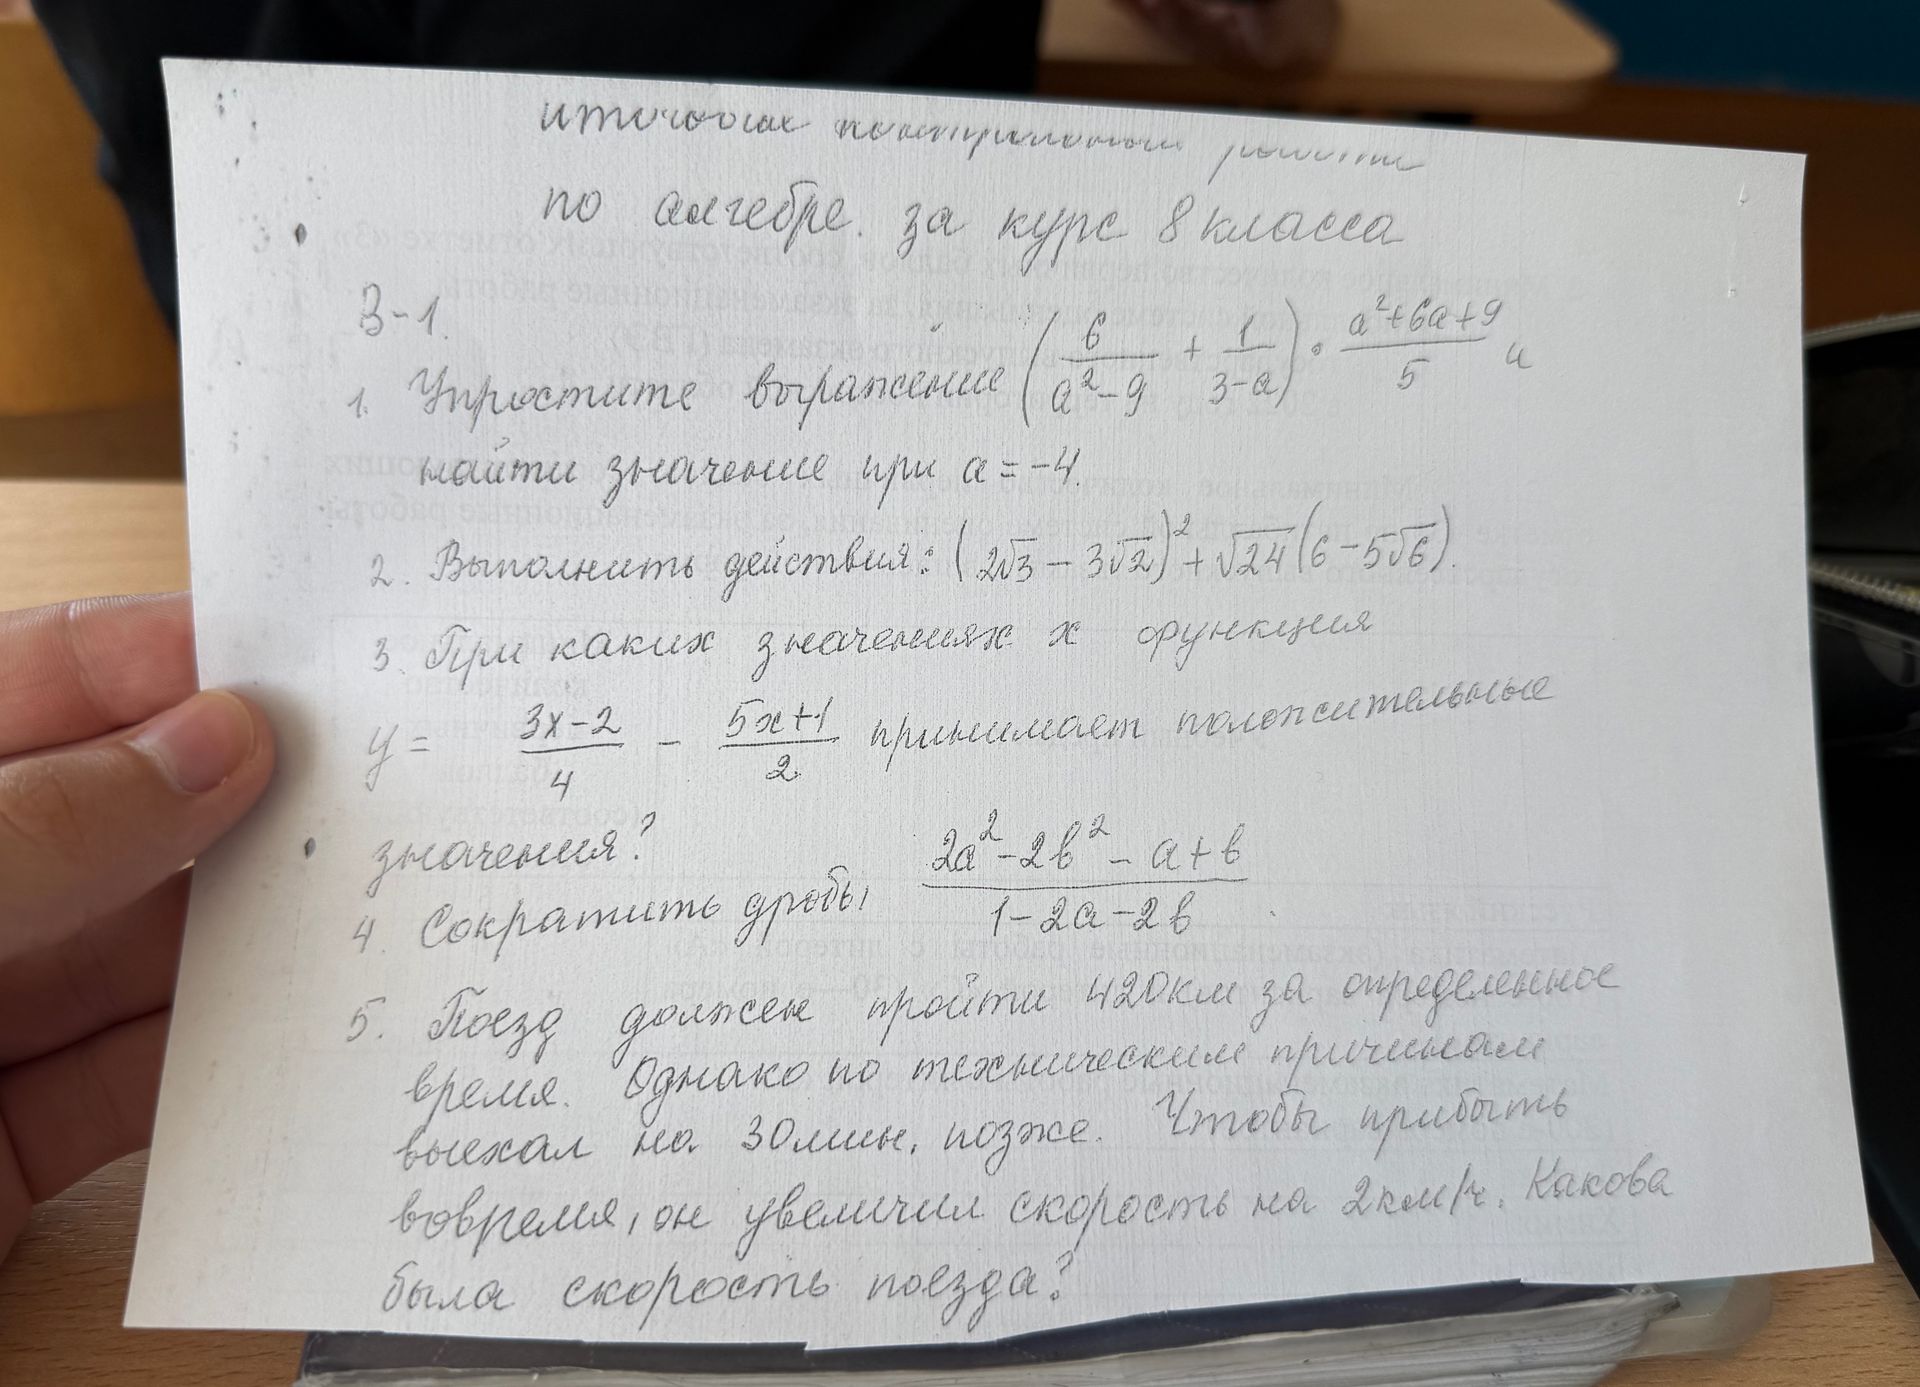 итоговая контрольная работа
по алгебре. за курс 8 класса
В-1.
1. Упростите выражение (6/(a²-9) + 1/(3-a)) · (a²+6a+9)/5 и
найти значение при a = -4.
2. Выполнить действия: (2√3 - 3√2)² + √24 (6 - 5√6).
3. При каких значениях x функция
y = (3x-2)/4 - (5x+1)/2 принимает положительные
значения?
4. Сократить дробь (2a²-2b²-a+b)/(1-2a-2b).
5. Поезд должен пройти 420км за определенное
время. Однако по техническим причинам
выехал на 30мин. позже. Чтобы прибыть
вовремя, он увеличил скорость на 2км/ч. Какова
была скорость поезда?